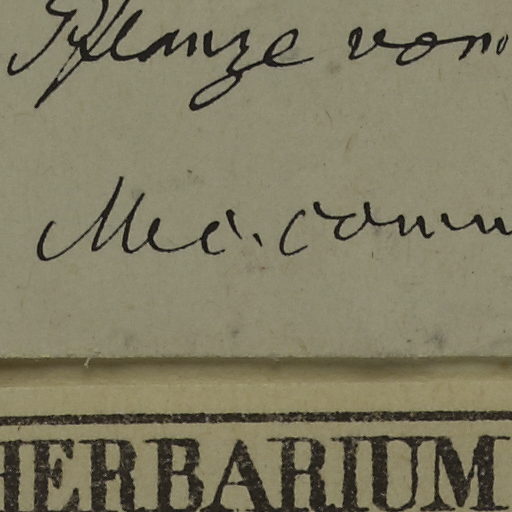 Pflanze vom
Mec. comm
HERBARIUM